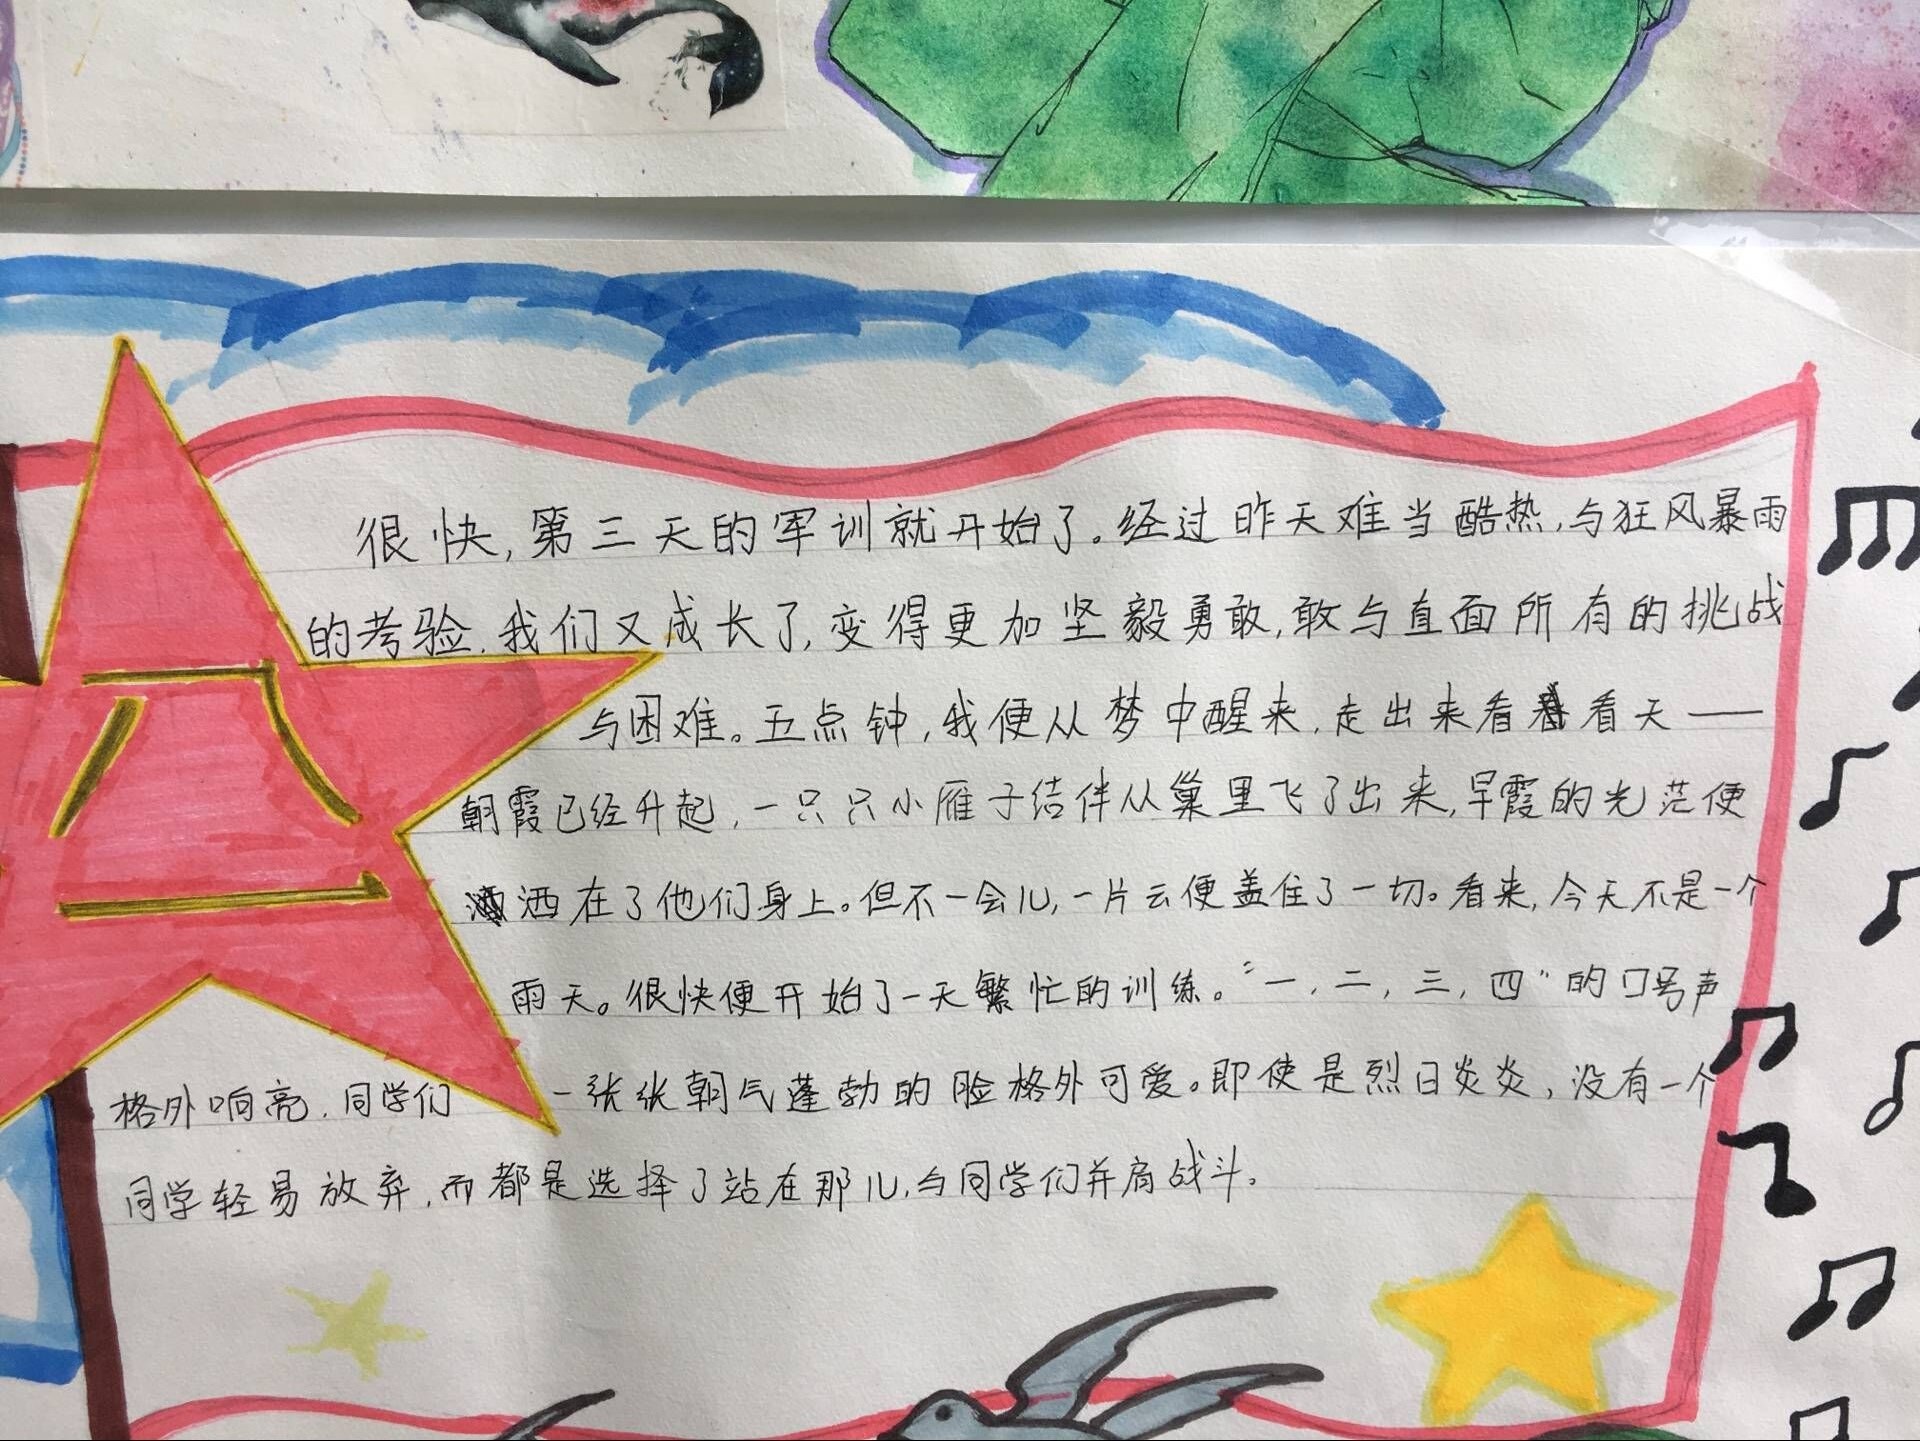 很快,第三天的军训就开始了。经过昨天难当酷热,与狂风暴雨
的考验,我们又成长了,变得更加坚毅勇敢,敢与直面所有的挑战
与困难。五点钟,我便从梦中醒来,走出来看看天——
朝霞已经升起,一只只小雁子结伴从巢里飞了出来,早霞的光茫便
洒在了他们身上。但不一会儿,一片云便盖住了一切。看来,今天不是一个
雨天。很快便开始了一天繁忙的训练。“一,二,三,四”的口号声
格外响亮,同学们一张张朝气蓬勃的脸格外可爱。即使是烈日炎炎,没有一个
同学轻易放弃,而都是选择了站在那儿,与同学们并肩战斗。
八
一